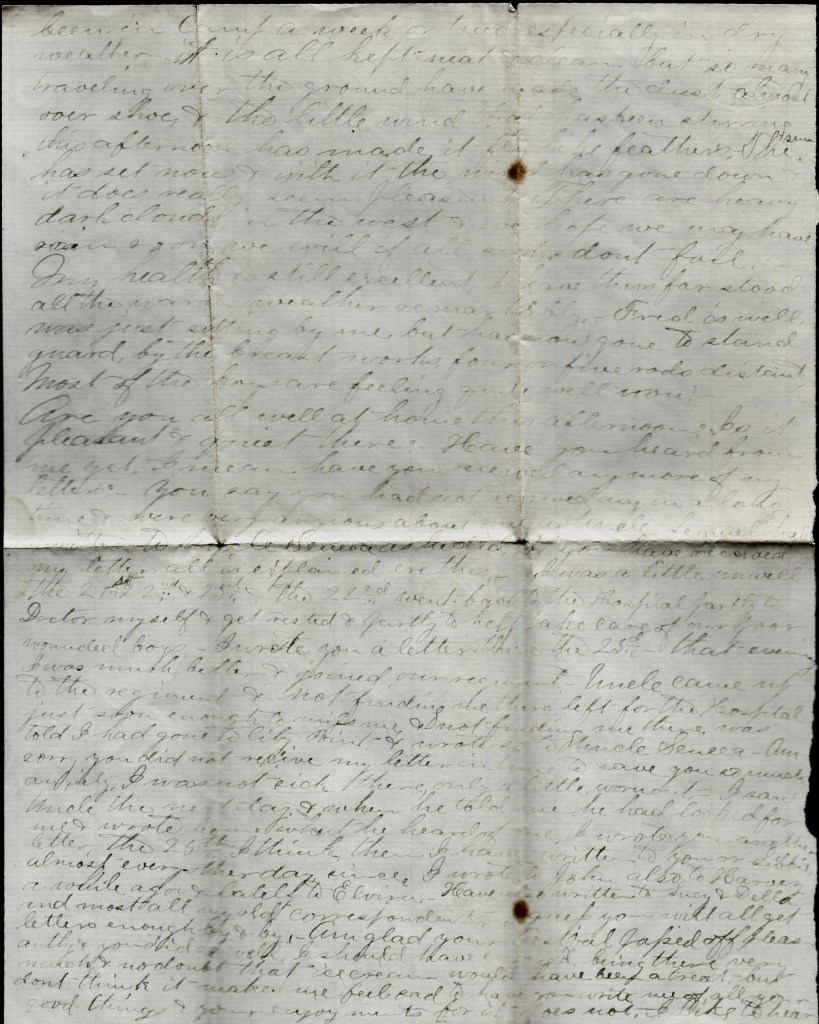 been in Camp a week or two especially in dry
weather, it is all kept neat & clean but so many
traveling over the ground have made the dust almost
over shoe, & the little wind that has been stirring
this afternoon has made it fly like feathers. The sun
has set now & with it the wind has gone down &
it does really seem pleasant. There are heavy
dark clouds in the west & we hope we may have
rain soon, we will if all signs dont fail. -
My health is still excellent I have thus far stood
all the warm weather remarkably - Fred is well,
was just sitting by me, but has now gone to stand
guard, by the breast works four or five rods distant
Most of the boys are feeling quite well now. -
Are you all well at home this afternoon, Is it
pleasant & quiet there? Have you heard from
me yet, I mean have you received any more of my
letters - You say you had not received any in a long
time & were very anxious about me, Uncle Samuel has
written to Uncle Seneca as he did. If you have received
my letters all is explained ere this, I was a little unwell
the 21st 22nd & 23rd & the 22nd went back to the Hospital partly to
Doctor myself & get rested & partly to help take care of our poor
wounded boys - I wrote you a letter there the 23rd - that evening
I was much better & joined our regiment. Uncle came up
to the regiment & not finding me there left for the Hospital
just soon enough to miss me, & not finding me there, was
told I had gone to City Point & wrote so to Uncle Seneca - Am
sorry you did not receive my letter in time to save you so much
anxiety, I was not sick there, only a little wornout - I saw
Uncle the next day & when he told me he had looked for
me & wrote home what he heard of me, I wrote you another
letter, the 25th I think, then I have written to you or
almost every other day since, I wrote to John also to Harvey
a while ago & lately to Elvira - Have also written to Lucy & Della
and most all my old correspondents, I guess you will all get
letters enough by & by. - Am glad your Festival passed off pleas-
antly & you did so well, I should have enjoyed being there very
much & no doubt that ice cream would have been a treat, but
dont think it makes me feel sad to have you write me of all your
good things & your enjoyments for it does not, I like to hear